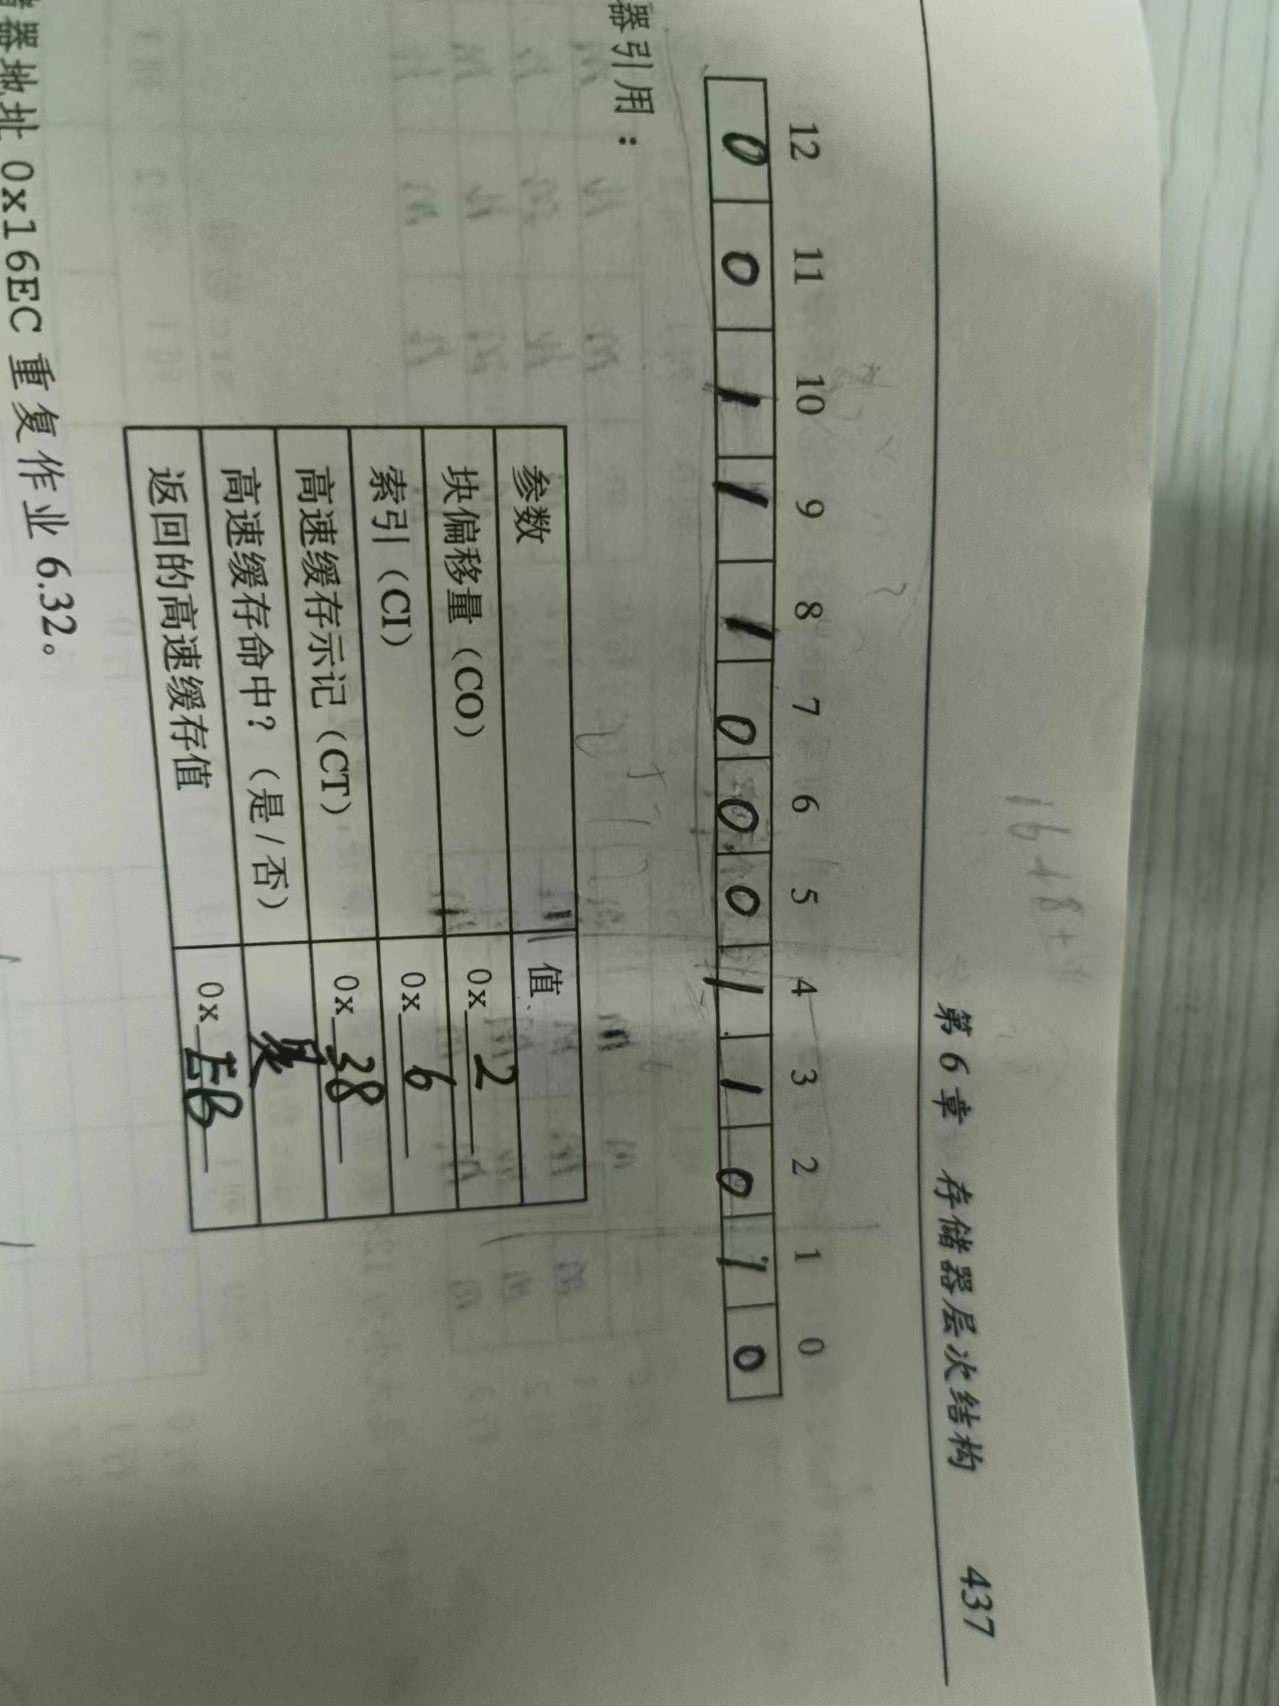 第6章 存储器层次结构 437
12 11 10 9 8 7 6 5 4 3 2 1 0
0 0 1 1 1 0 0 0 1 1 0 1 0
器引用：
参数 值
块偏移量（CO） 0x 2
索引（CI） 0x 6
高速缓存示记（CT） 0x 38
高速缓存命中？（是/否） 是
返回的高速缓存值 0x EB
器地址 0x16EC 重复作业 6.32。